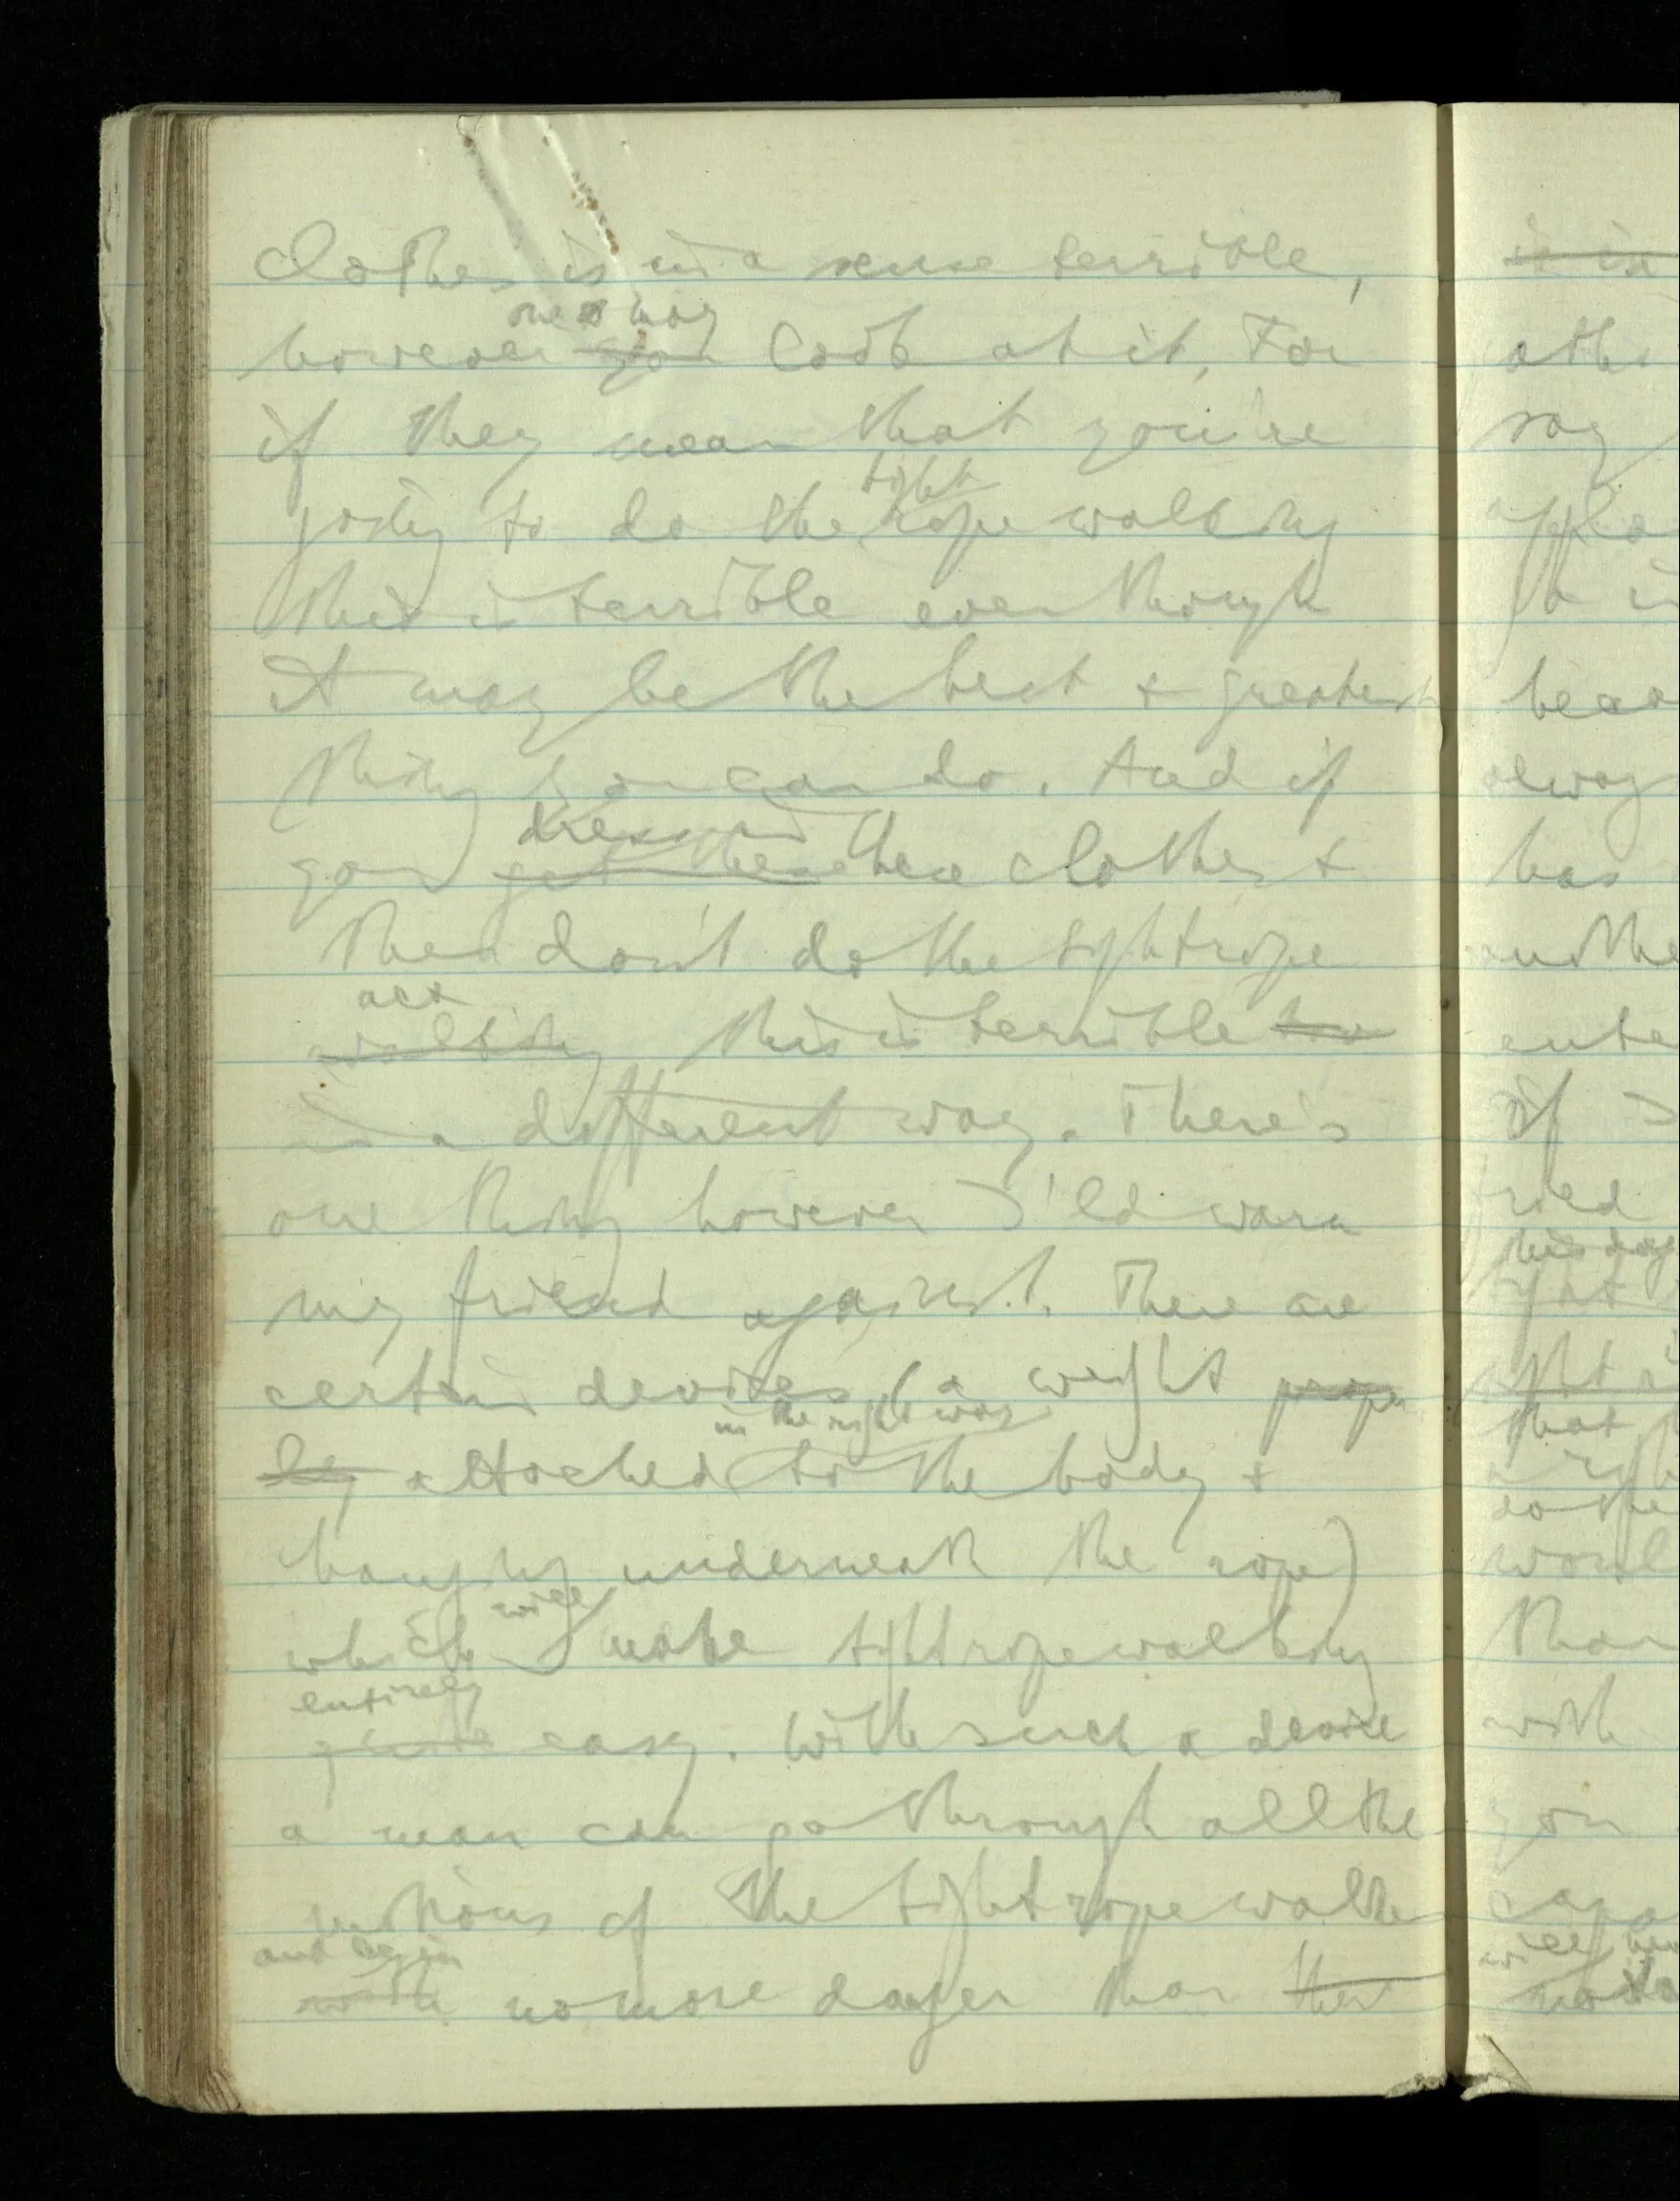 clothes is in a sense terrible,
one may
however you look at it. For
if they mean that you're
tight
going to do the rope walking
this is terrible even though
it may be the best & greatest
thing you can do. And if
dress in
you get these these clothes &
then don't do the tightrope
act
walking this is terrible too
in a different way. There's
one thing however I'ld warn
my friend against. There are
certain devices (a weight prope
in the right way
ly attached to the body &
hanging underneath the rope)
will
which make tightropewalking
entirely
quite easy. With such a device
a man can go through all the
motions of the tightropewalker
and be in
with no more danger than
is in
othe
say
always
has
anothe
If I
this day
that
woul
than
with
you
can
will